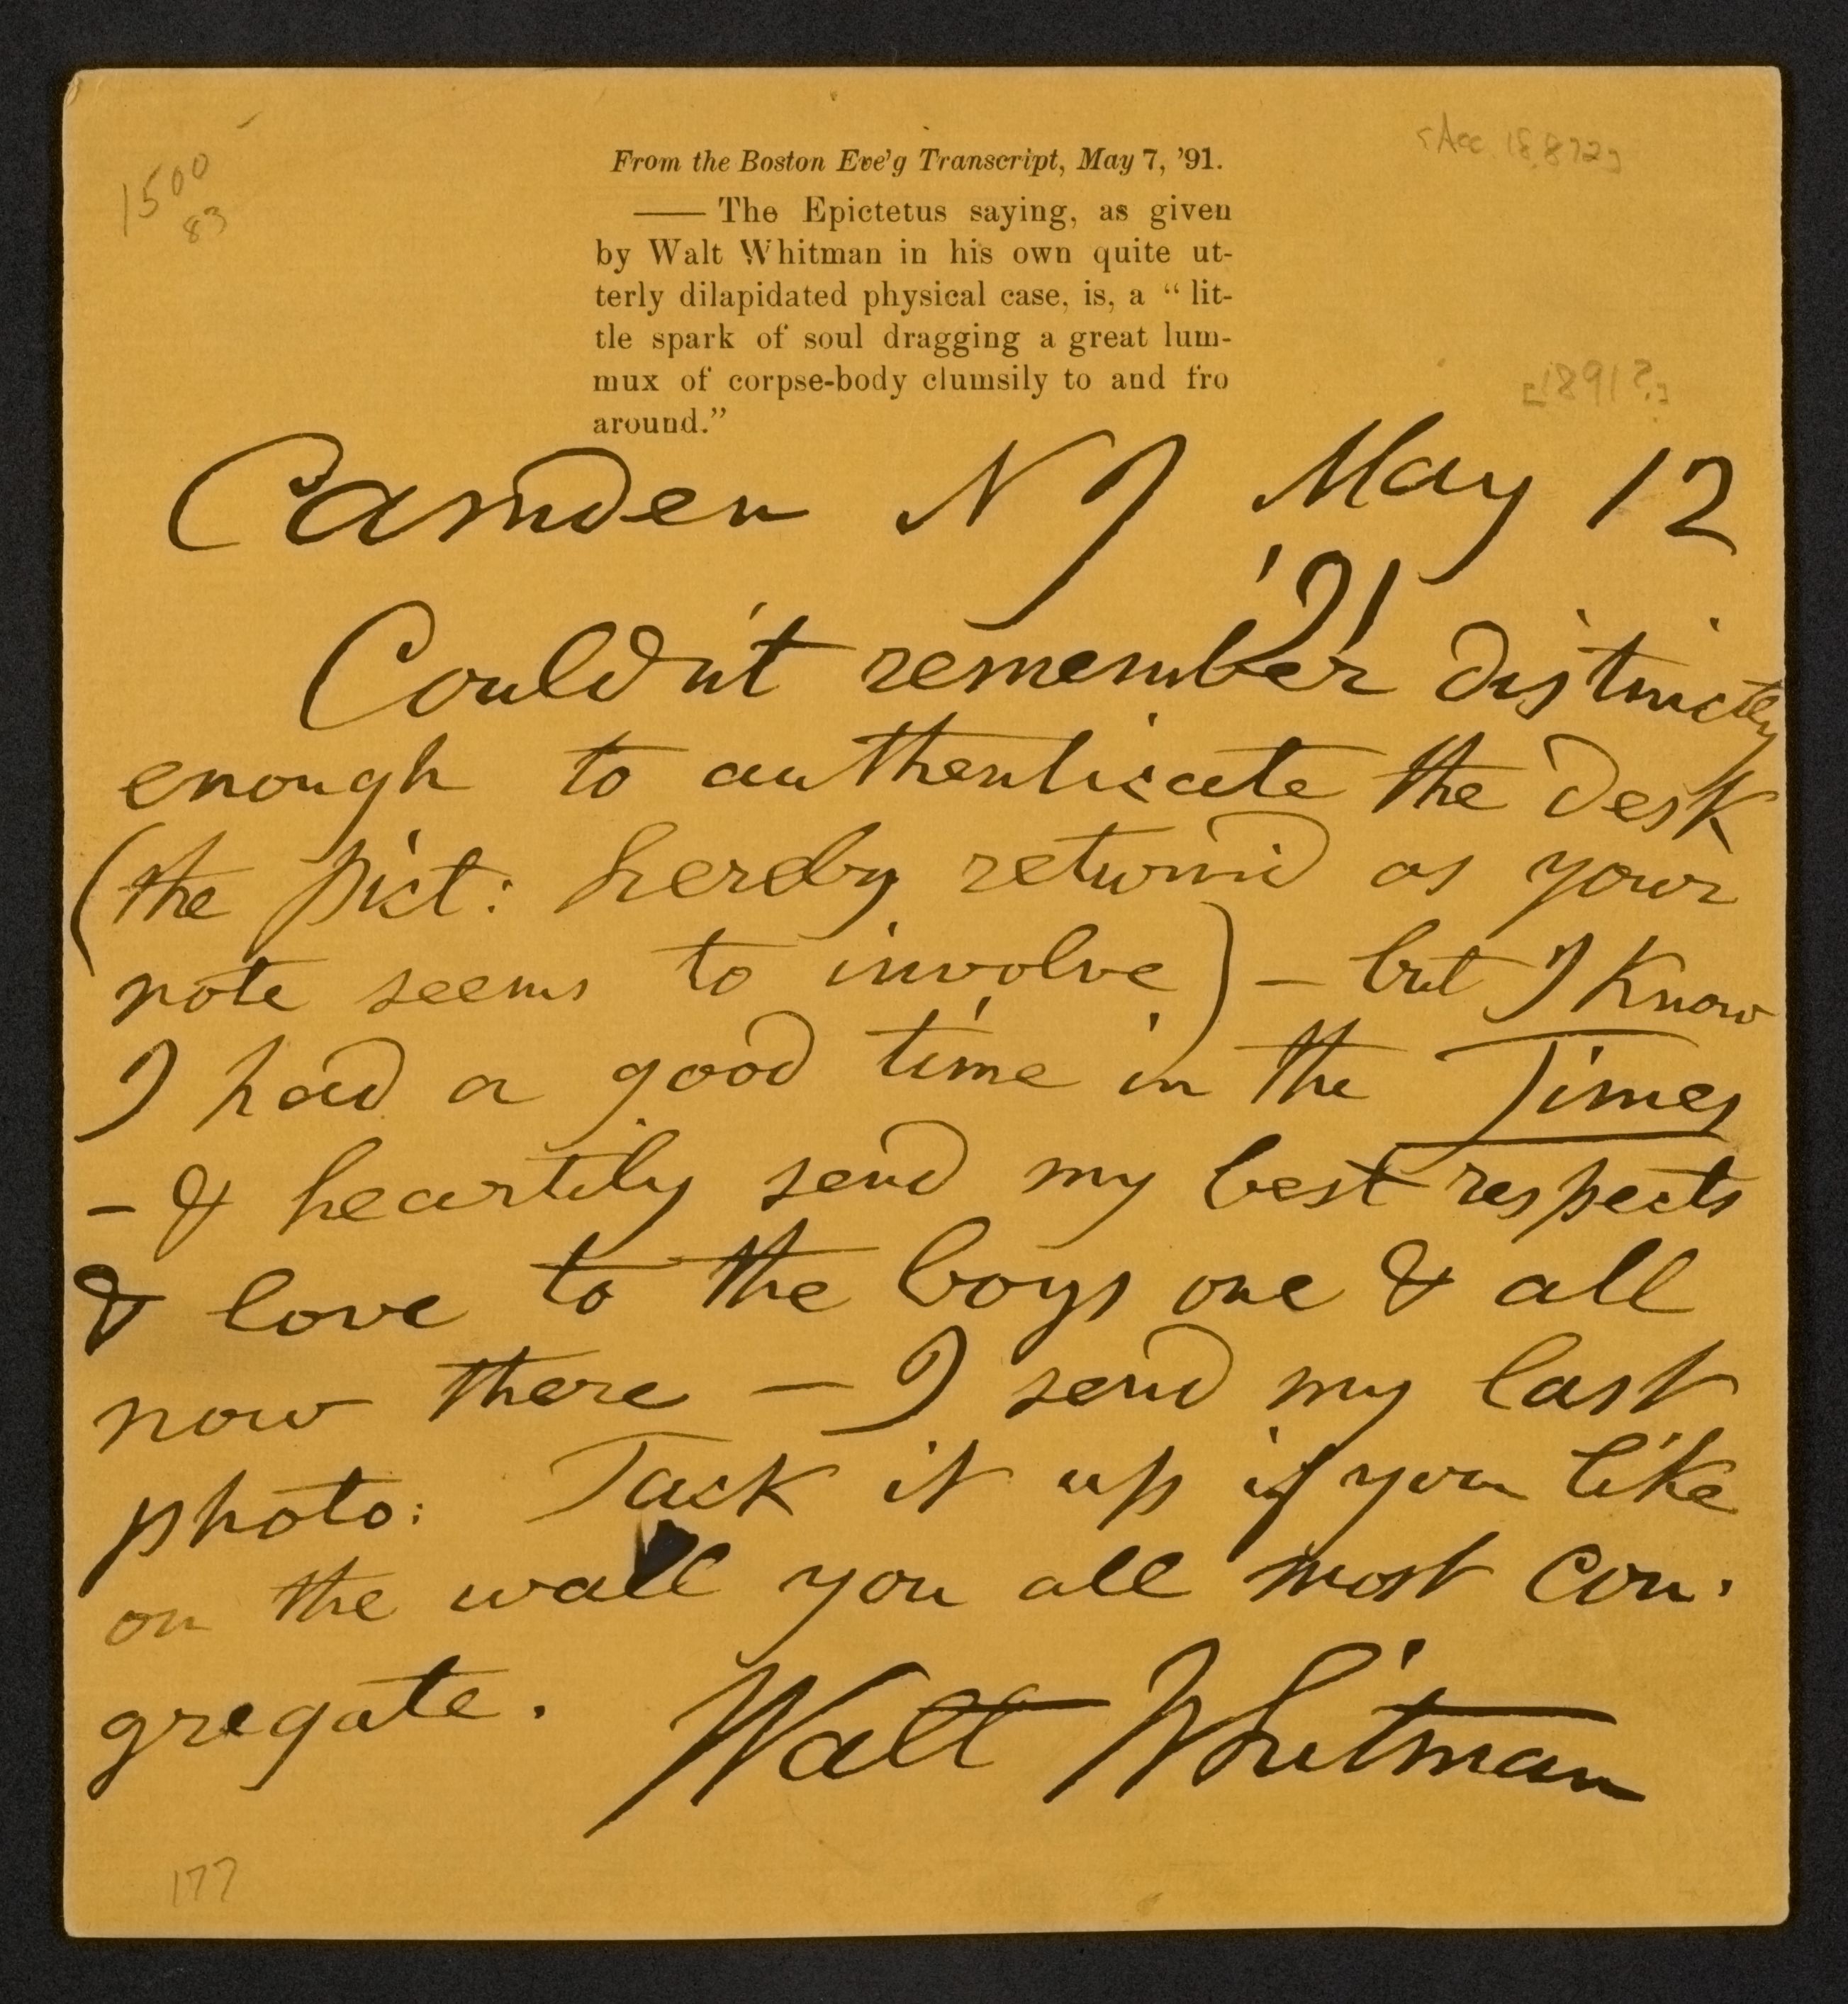 1500
83
[Acc 18,872]
From the Boston Eve'g Transcript, May 7, '91.
—— The Epictetus saying, as given
by Walt Whitman in his own quite ut-
terly dilapidated physical case, is, a “ lit-
tle spark of soul dragging a great lum-
mux of corpse-body clumsily to and fro
around.”
[1891?]
Camden N J May 12
'91
Could n't remember distinctly
enough to authenticate the desk
(the pict: hereby return'd as your
note seems to involve) – but I know
I had a good time in the Times
– & heartily send my best respects
& love to the boys one & all
now there – I send my last
photo: Tack it up if you like
on the wall you all most con-
gregate.
Walt Whitman
177